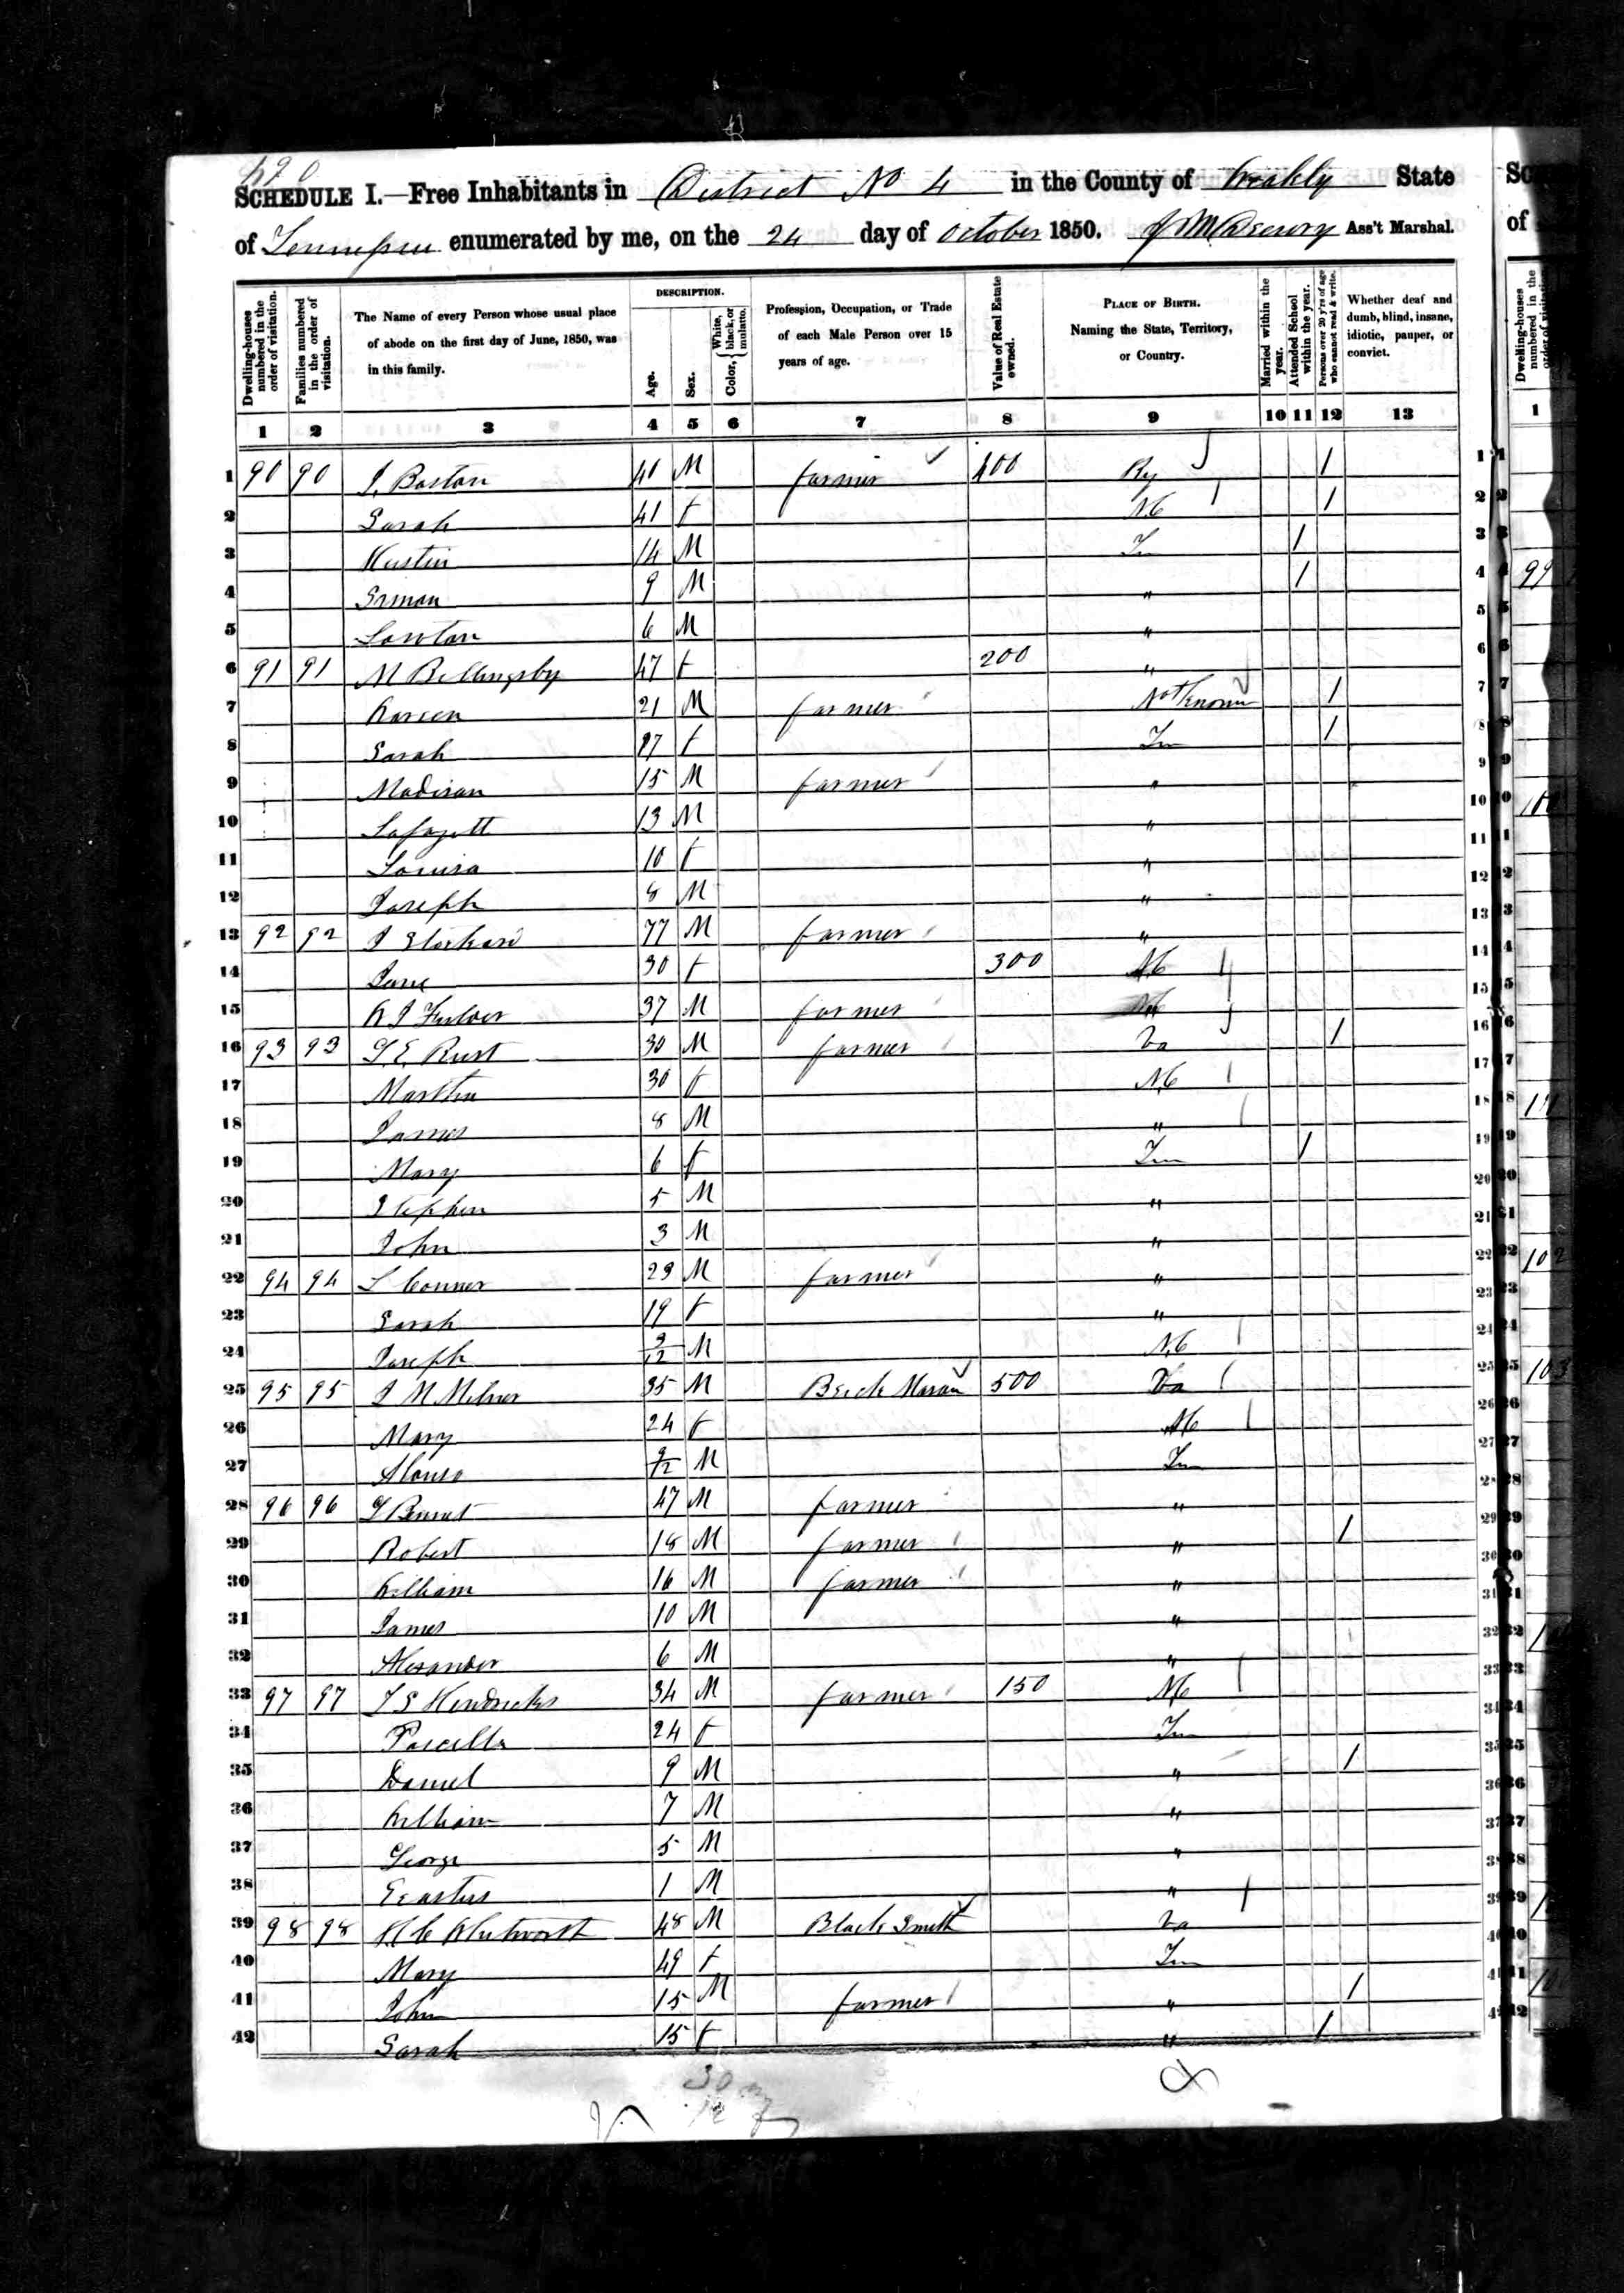 420
SCHEDULE I.—Free Inhabitants in District No 4 in the County of Weakly State
of Tennessee enumerated by me, on the 24 day of October 1850. Ass't Marshal.
Dwelling-houses numbered in the order of visitation.
Families numbered in the order of visitation.
The Name of every Person whose usual place of abode on the first day of June, 1850, was in this family.
DESCRIPTION.
Age.
Sex.
Color, { White, black, or mulatto.
Profession, Occupation, or Trade of each Male Person over 15 years of age.
Value of Real Estate owned.
PLACE OF BIRTH. Naming the State, Territory, or Country.
Married within the year.
Attended School within the year.
Persons over 20 y'rs of age who cannot read & write.
Whether deaf and dumb, blind, insane, idiotic, pauper, or convict.
1 2 3 4 5 6 7 8 9 10 11 12 13
1 90 90 J. Boston 41 M farmer 400 Ky 1 1
2 Sarah 41 f NC 1 2
3 14 M Tn 1 3
4 9 M " 1 4
5 6 M " 5
6 91 91 M Bellingsby 47 f 200 " 6
7 21 M farmer Not Known 1 7
8 Sarah 27 f Tn 1 8
9 Madison 15 M farmer " 9
10 Lafayett 13 M " 10
11 Louisa 10 f " 11
12 Joseph 8 M " 12
13 92 92 J 77 M farmer " 13
14 Jane 30 f 300 NC 14
15 37 M farmer 15
16 93 93 T. E. Rust 30 M farmer Va 1 16
17 Martha 30 f NC 17
18 James 8 M " 18
19 Mary 6 f Tn 1 19
20 Stephen 5 M " 20
21 John 3 M " 21
22 94 94 L Conner 23 M farmer " 22
23 Sarah 19 f " 23
24 Joseph 3/12 M NC 24
25 95 95 J M Milner 35 M Brick Mason 500 Va 25
26 Mary 24 f NC 26
27 Alonso 9/12 M Tn 27
28 96 96 47 M farmer " 28
29 Robert 18 M farmer " 1 29
30 William 16 M farmer " 30
31 James 10 M " 31
32 Alexander 6 M " 32
33 97 97 T S Hendricks 34 M farmer 150 NC 33
34 Parcella 24 f Tn 34
35 Daniel 9 M " 1 35
36 William 7 M " 36
37 George 5 M " 37
38 Erastus 1 M " 38
39 98 98 48 M Black Smith Va 39
40 Mary 49 f Tn 40
41 John 15 M farmer " 1 41
42 Sarah 15 f " 1 42
30 m
12 f
8